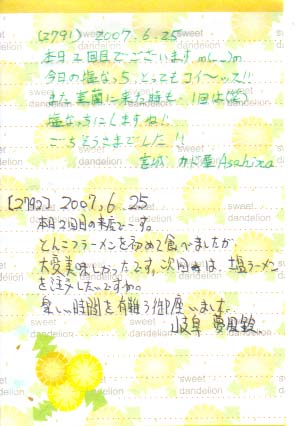 (2791) 2007.6.25
本日2回目でございますm(__)m
今日の塩なっち、とってもコイ〜ッス!!
また来た時も、1回は(笑)
塩なっちにしますね!
ごちそうさまでした!!
宮城 Asahina
【2792】2007.6.25
本日2回目の来店で〜す。
とんこつラーメンを初めて食べましたが
大変美味しかったです。次回は、塩ラーメン
を注文したいですね。
楽しい時間を有難う御座います。
岐阜
sweet dandelion